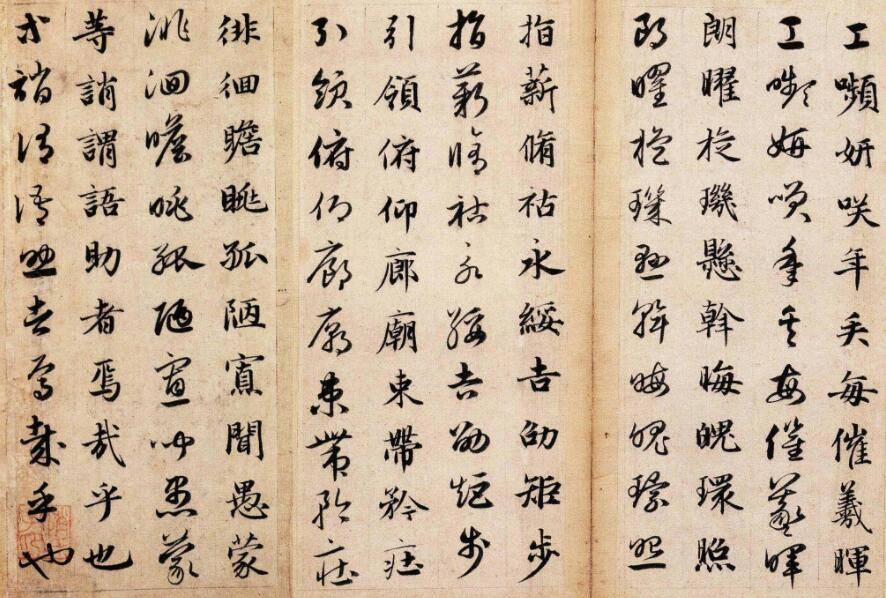 工嚬妍咲年矢每催羲暉
工嚬妍咲年矢每催羲暉
朗曜旋璣懸斡晦魄環照
朗曜旋璣懸斡晦魄環照
指薪脩祜永綏吉劭矩步
指薪脩祜永綏吉劭矩步
引領俯仰廊廟束帶矜莊
引領俯仰廊廟束帶矜莊
徘徊瞻眺孤陋寡聞愚蒙
徘徊瞻眺孤陋寡聞愚蒙
等誚謂語助者焉哉乎也
等誚謂語助者焉哉乎也